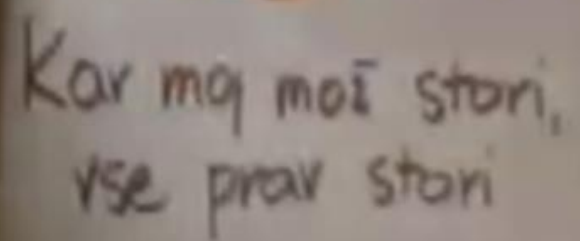 Kar moj mož stori,
vse prav stori